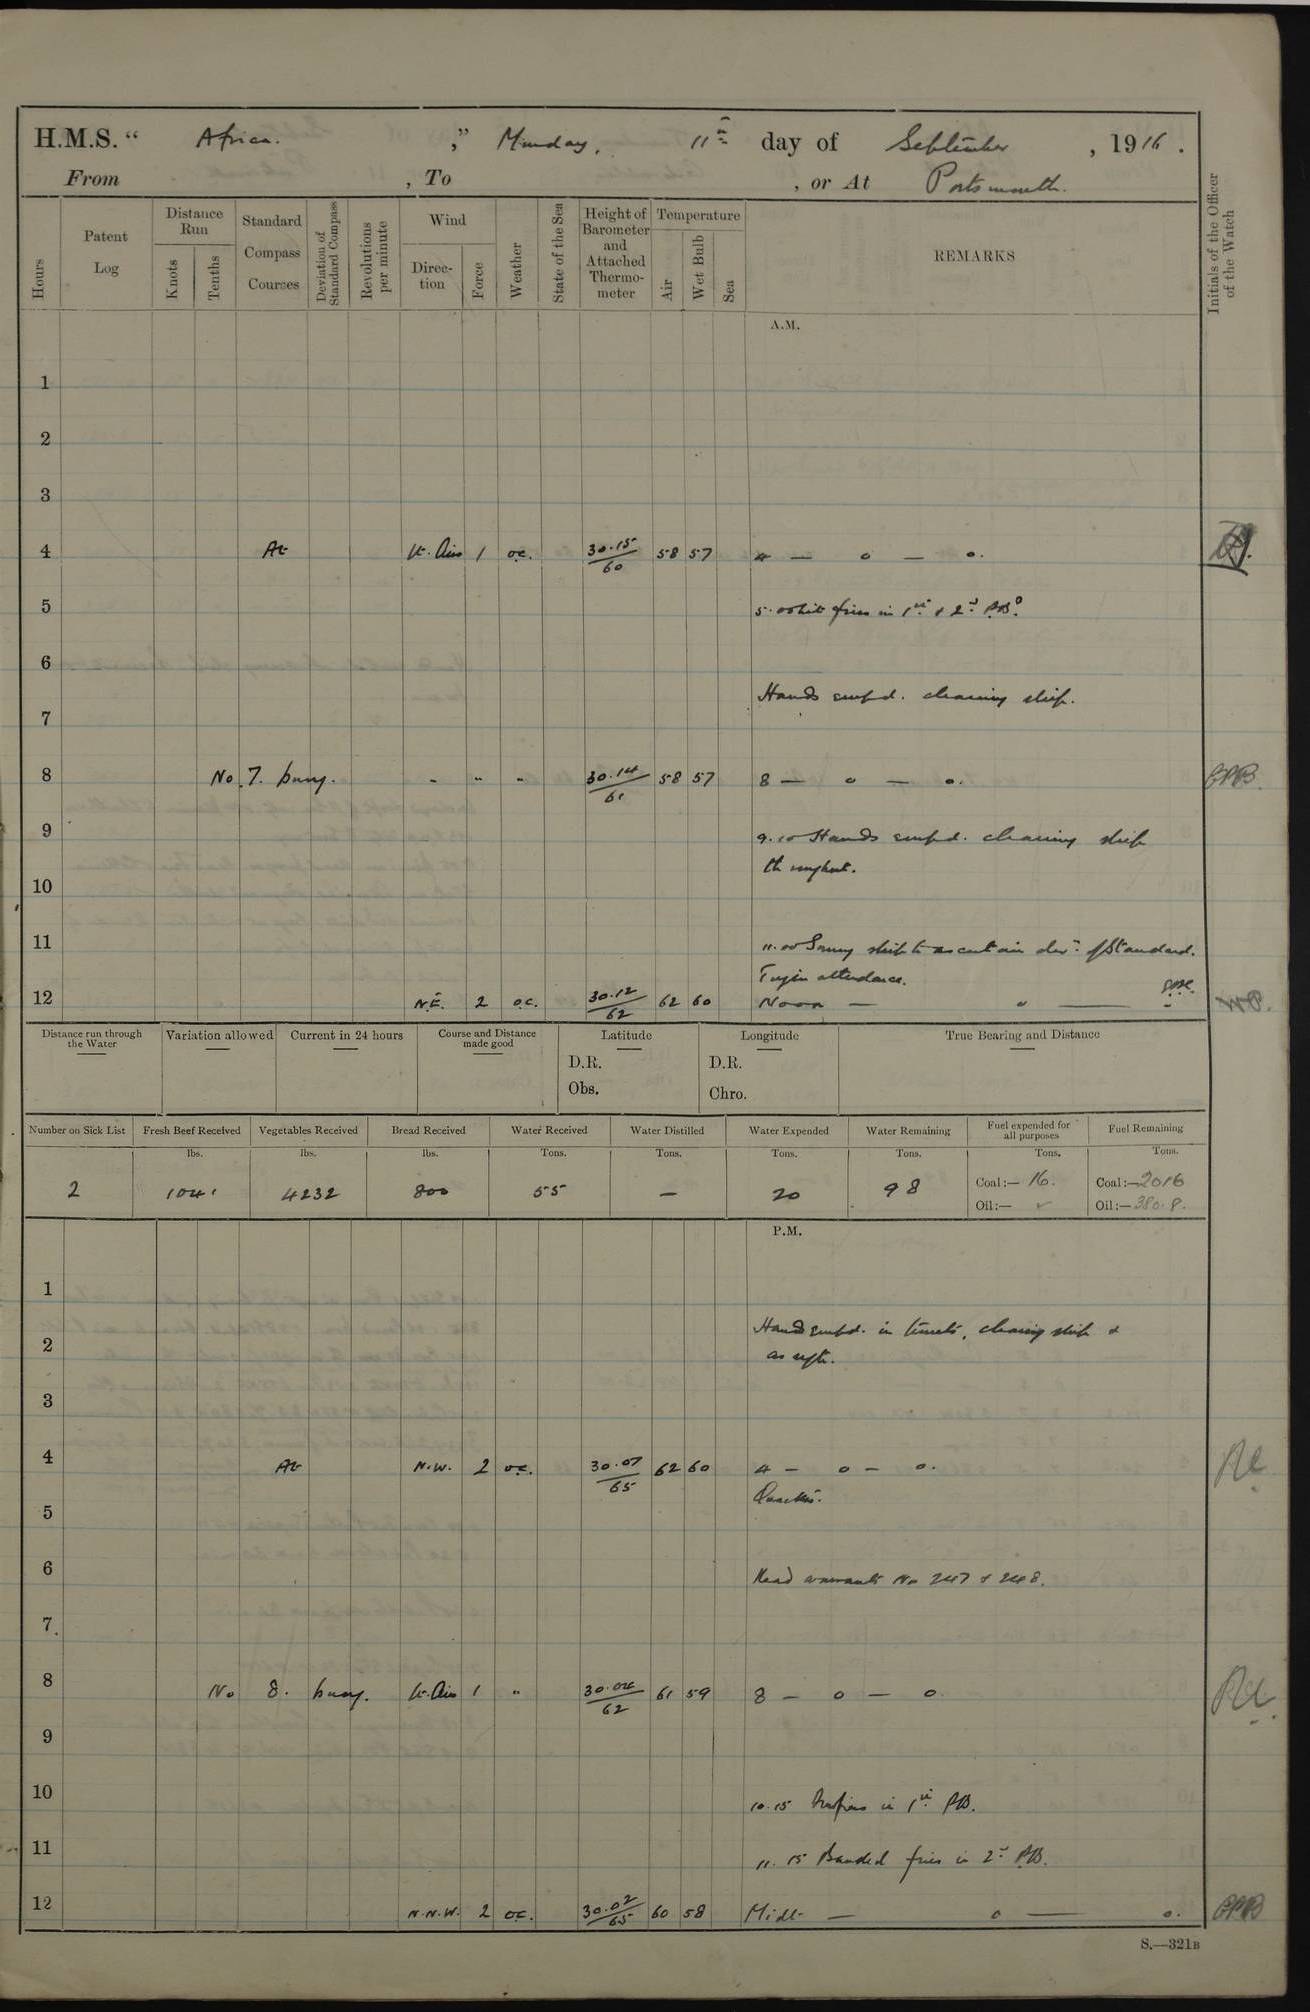 H.M.S. “ Africa. ,” Monday, 11th day of September , 1916 .
From , To , or At Portsmouth.
Hours
Patent Log
Distance Run
Knots
Tenths
Standard Compass Courses
Deviation of Standard Compass
Revolutions per minute
Wind
Direction
Force
Weather
State of the Sea
Height of Barometer and Attached Thermometer
Temperature
Air
Wet Bulb
Sea
REMARKS
Initials of the Officer of the Watch
A.M.
1
2
3
4 At Lt. Airs 1 oc. 30.15/60 58 57 4 — o — o.
5 5.00 Lit fires in 1st & 2nd P.B.s
6
Hands empd. cleaning ship.
7
8 No. 7. buoy. " " " 30.14/61 58 57 8 — o — o. GPB.
9 9.10 Hands empd. cleaning ship
throughout.
10
11 11.00 Swung ship to ascertain devn. of Standard.
Tug in attendance.
12 N.E. 2 oc. 30.12/62 62 60 Noon — o —
Distance run through the Water
Variation allowed
Current in 24 hours
Course and Distance made good
Latitude
D.R.
Obs.
Longitude
D.R.
Chro.
True Bearing and Distance
Number on Sick List Fresh Beef Received Vegetables Received Bread Received Water Received Water Distilled Water Expended Water Remaining Fuel expended for all purposes Fuel Remaining
lbs. lbs. lbs. Tons. Tons. Tons. Tons. Tons. Tons.
2 1041 4232 800 55 — 20 98 Coal:— 16. Coal:—2016
Oil:— ✓ Oil:—380.8.
P.M.
1
Hands empd. in turrets, cleaning ship &
2 as reqte.
3
4 At N.W. 2 oc. 30.07/65 62 60 4 — o — o.
Quarters.
5
6 Read warrants No 247 & 248.
7
8 No 8. buoy. Lt. Airs 1 " 30.04/62 61 59 8 — o — o
9
10 10.15 fires in 1st P.B.
11 11.15 Banked fires in 2nd P.B.
12 N.N.W. 2 oc. 30.02/65 60 58 Midt — o — o. GPB
S.—321B